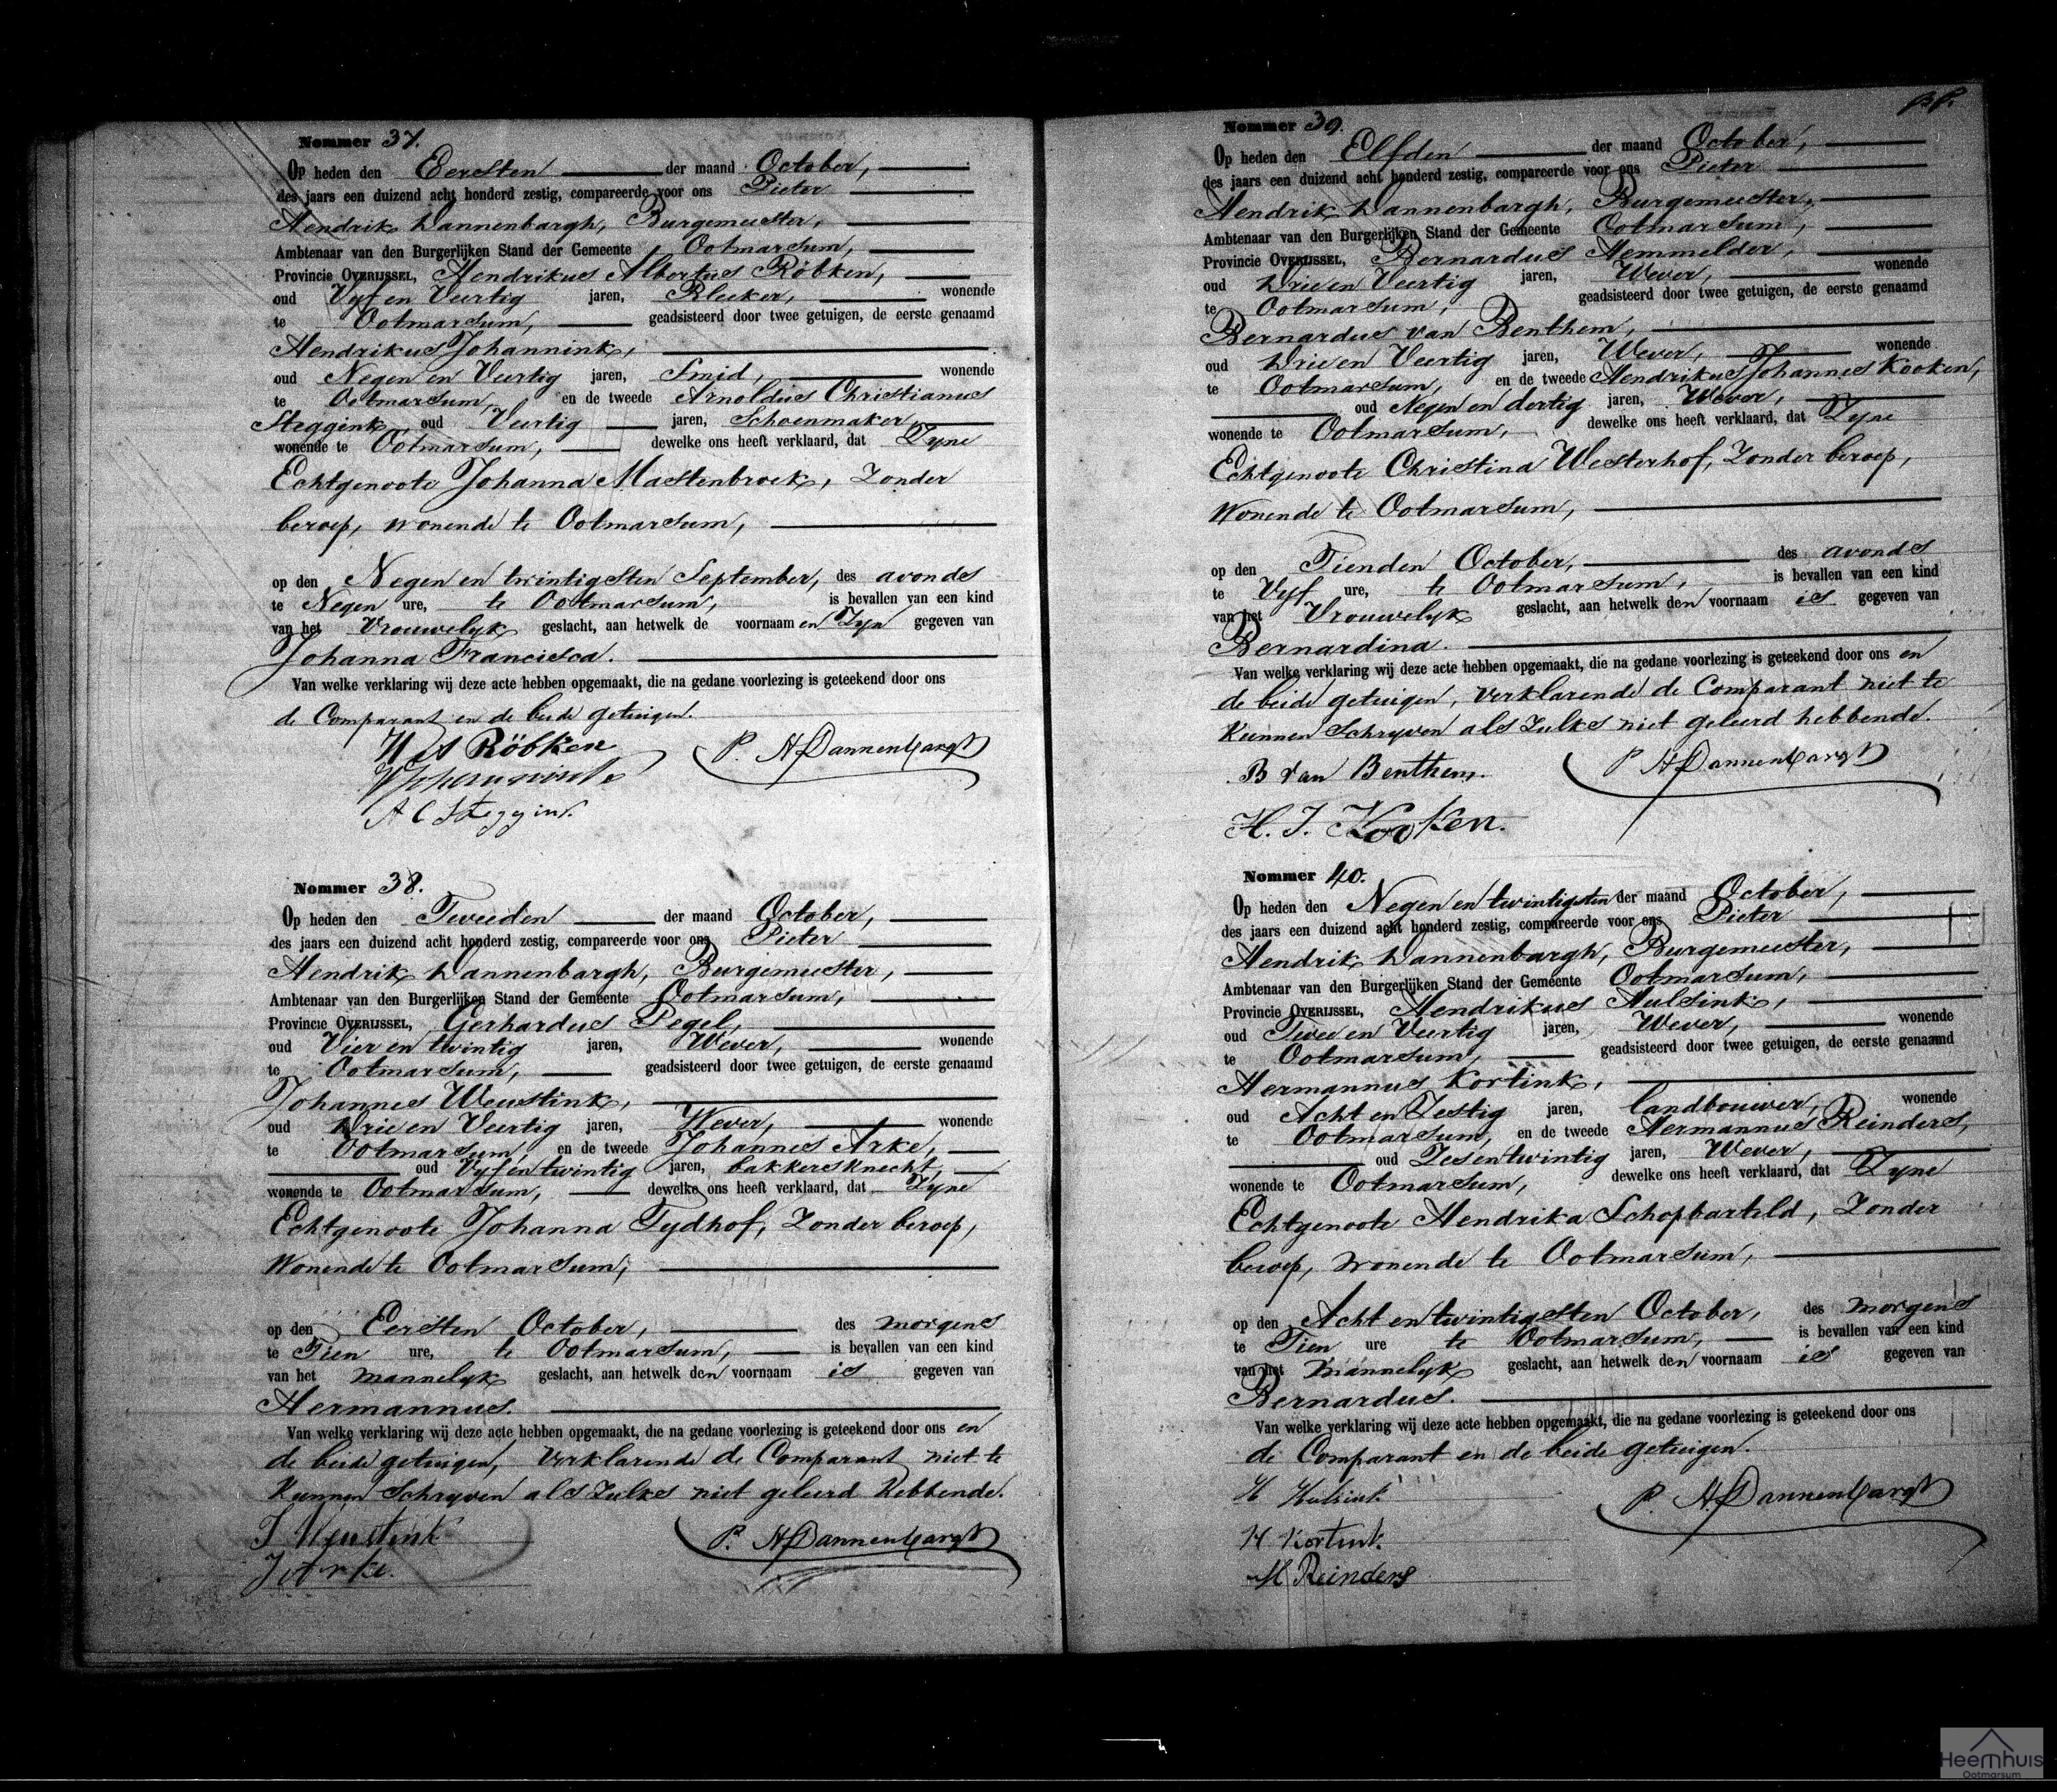 Nommer 37.
Op heden den Eersten der maand October,
des jaars een duizend acht honderd zestig, compareerde voor ons Pieter
Hendrik Dannenbargh, Burgemeester,
Ambtenaar van den Burgerlijken Stand der Gemeente Ootmarsum,
Provincie OVERIJSSEL, Hendrikus Albertus Röbken,
oud Vyf en Veertig jaren, Bleeker, wonende
te Ootmarsum, geadsisteerd door twee getuigen, de eerste genaamd
Hendrikus Johannink,
oud Negen en Veertig jaren, Smid, wonende
te Ootmarsum, en de tweede Arnoldus Christianus
Steggink, oud Veertig jaren, Schoenmaker
wonende te Ootmarsum, dewelke ons heeft verklaard, dat Zyne
Echtgenoote Johanna Mastenbroek, Zonder
beroep, wonende te Ootmarsum,
op den Negen en twintigsten September, des avonds
te Negen ure, te Ootmarsum, is bevallen van een kind
van het Vrouwelyk geslacht, aan hetwelk de voornaamen Zyn gegeven van
Johanna Francisca.
Van welke verklaring wij deze acte hebben opgemaakt, die na gedane voorlezing is geteekend door ons
de Comparant en de beide getuigen.
Röbken P. H Dannenbargh
A C Steggink
Nommer 38.
Op heden den Tweeden der maand October,
des jaars een duizend acht honderd zestig, compareerde voor ons Pieter
Hendrik Dannenbargh, Burgemeester,
Ambtenaar van den Burgerlijken Stand der Gemeente Ootmarsum,
Provincie OVERIJSSEL, Gerhardus Pegel,
oud Vier en twintig jaren, Wever, wonende
te Ootmarsum, geadsisteerd door twee getuigen, de eerste genaamd
Johannes Weustink,
oud Drie en Veertig jaren, Wever, wonende
te Ootmarsum, en de tweede Johannes Arke,
oud Vyf en twintig jaren, bakkersknecht,
wonende te Ootmarsum, dewelke ons heeft verklaard, dat Zyne
Echtgenoote Johanna Tydhof, Zonder beroep,
Wonende te Ootmarsum,
op den Eersten October, des morgens
te Tien ure, te Ootmarsum, is bevallen van een kind
van het mannelyk geslacht, aan hetwelk den voornaam is gegeven van
Hermannus.
Van welke verklaring wij deze acte hebben opgemaakt, die na gedane voorlezing is geteekend door ons en
de beide getuigen, Verklarende de Comparant niet te
Kunnen Schryven als Zulks niet geleerd hebbende.
J Weustink P. H Dannenbargh
J Arke.
Nommer 39.
Op heden den Elfden der maand October,
des jaars een duizend acht honderd zestig, compareerde voor ons Pieter
Hendrik Dannenbargh, Burgemeester,
Ambtenaar van den Burgerlijken Stand der Gemeente Ootmarsum,
Provincie OVERIJSSEL, Bernardus Hemmelder,
oud Drie en Veertig jaren, Wever, wonende
te Ootmarsum, geadsisteerd door twee getuigen, de eerste genaamd
Bernardus van Benthem,
oud Drie en Veertig jaren, Wever, wonende
te Ootmarsum, en de tweede Hendrikus Johannes Kooken,
oud Negen en dertig jaren, Wever,
wonende te Ootmarsum, dewelke ons heeft verklaard, dat Zyne
Echtgenoote Christina Westerhof, Zonder beroep,
Wonende te Ootmarsum,
op den Tienden October, des avonds
te Vyf ure, te Ootmarsum, is bevallen van een kind
van het Vrouwelyk geslacht, aan hetwelk den voornaam is gegeven van
Bernardina.
Van welke verklaring wij deze acte hebben opgemaakt, die na gedane voorlezing is geteekend door ons en
de beide getuigen, Verklarende de Comparant niet te
Kunnen Schryven als Zulks niet geleerd hebbende.
B Van Benthem. P H Dannenbargh
H. J. Kooken.
Nommer 40.
Op heden den Negen en twintigsten der maand October,
des jaars een duizend acht honderd zestig, compareerde voor ons Pieter
Hendrik Dannenbargh, Burgemeester,
Ambtenaar van den Burgerlijken Stand der Gemeente Ootmarsum,
Provincie OVERIJSSEL, Hendrikus Hulsink,
oud Twee en Veertig jaren, Wever, wonende
te Ootmarsum, geadsisteerd door twee getuigen, de eerste genaamd
Hermannus Kortink,
oud Acht en Zestig jaren, landbouwer, wonende
te Ootmarsum, en de tweede Hermannus Reinders,
oud Zes en twintig jaren, Wever,
wonende te Ootmarsum, dewelke ons heeft verklaard, dat Zyne
Echtgenoote Hendrika Schopbarteld, Zonder
beroep, wonende te Ootmarsum,
op den Acht en twintigsten October, des morgens
te Tien ure te Ootmarsum, is bevallen van een kind
van het mannelyk geslacht, aan hetwelk den voornaam is gegeven van
Bernardus.
Van welke verklaring wij deze acte hebben opgemaakt, die na gedane voorlezing is geteekend door ons
de Comparant en de beide getuigen.
H Hulsink P. H Dannenbargh
H Kortink
H Reinders
Heemhuis
Ootmarsum